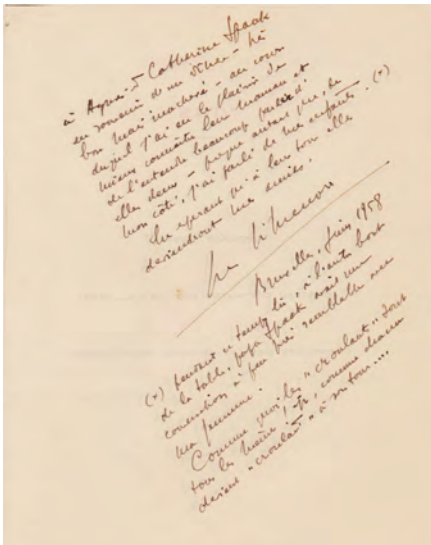 à Agnès & Catherine Spaak
en souvenir de un dîner — très
bon mais inachevé — au cours
duquel j'ai eu le plaisir de
mieux connaître leur maman et
de l'entendre beaucoup parler d'
elles deux — presque autant que, de
mon côté, j'ai parlé de mes enfants. (*)
En espérant qu'à leur tour elles
deviendront mes amies.
Simenon
Bruxelles, Juin 1958
(*) pendant ce temps là, à l'autre bout
de la table, papa Spaak avait une
conversation à peu près semblable avec
ma femme.
Comme quoi les "croulants" sont
tous les mêmes! Et, comme chacun
devient "croulant" à son tour....